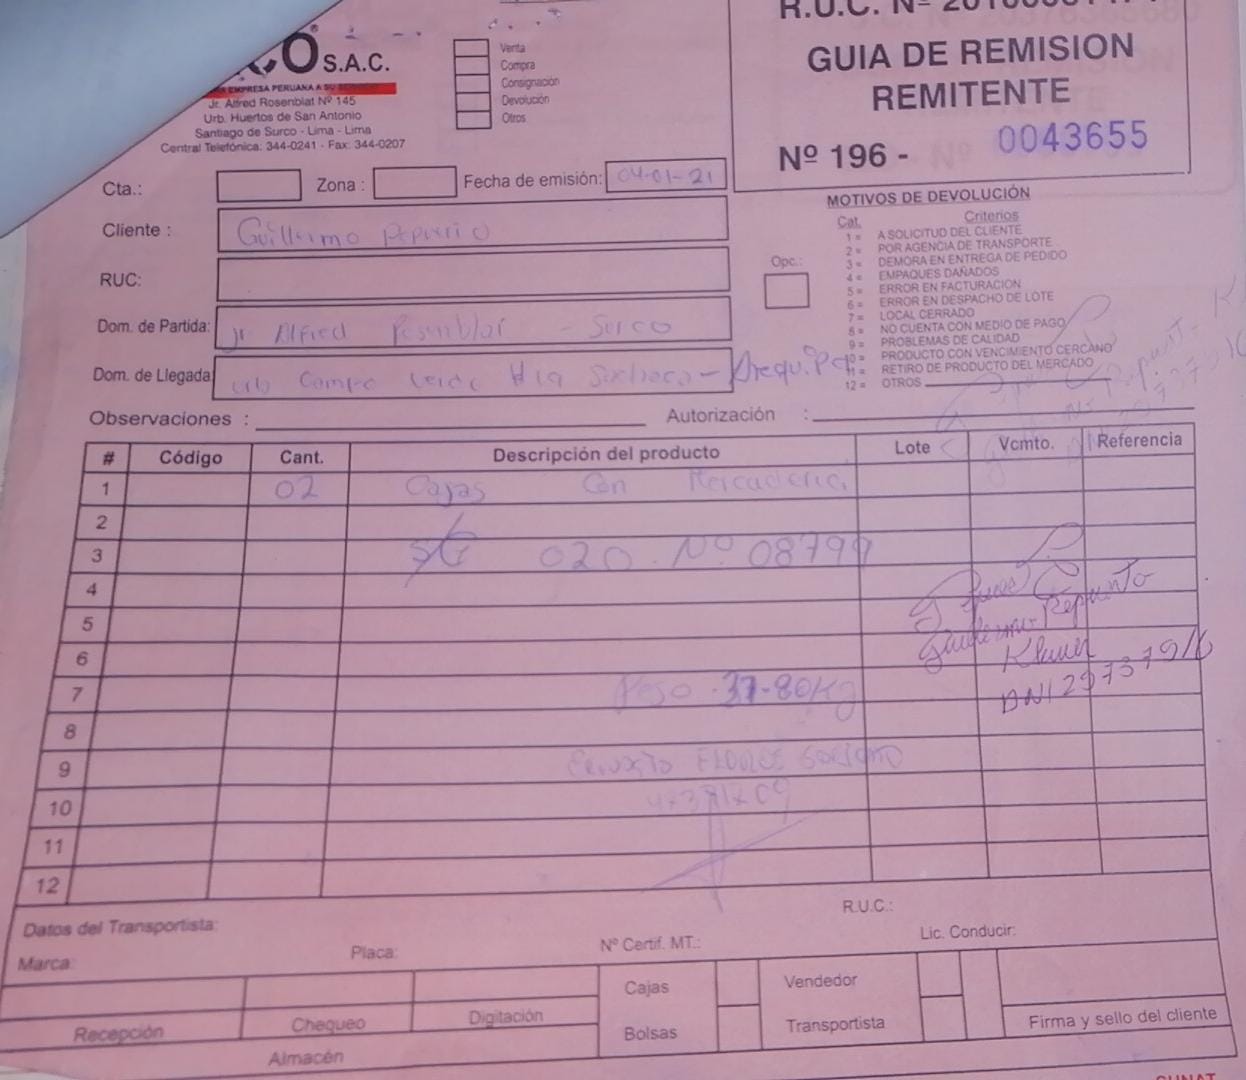 S.A.C.
EMPRESA PERUANA A SU
Jr. Alfred Rosenblat Nº 145
Urb. Huertos de San Antonio
Santiago de Surco - Lima - Lima
Central Telefónica: 344-0241 - Fax: 344-0207
Venta
Compra
Consignación
Devolución
Otros
R.U.C. Nº
GUIA DE REMISION
REMITENTE
Nº 196 - 0043655
Cta.:
Zona :
Fecha de emisión: 04-01-21
Cliente : Guillermo
RUC:
Dom. de Partida: Jr Alfred - Surco
Dom. de Llegada: Urb Campo Verde - Arequipa
Opc.:
MOTIVOS DE DEVOLUCIÓN
Cat. Criterios
1 = A SOLICITUD DEL CLIENTE
2 = POR AGENCIA DE TRANSPORTE
3 = DEMORA EN ENTREGA DE PEDIDO
4 = EMPAQUES DAÑADOS
5 = ERROR EN FACTURACION
6 = ERROR EN DESPACHO DE LOTE
7 = LOCAL CERRADO
8 = NO CUENTA CON MEDIO DE PAGO
9 = PROBLEMAS DE CALIDAD
10 = PRODUCTO CON VENCIMIENTO CERCANO
11 = RETIRO DE PRODUCTO DEL MERCADO
12 = OTROS
Observaciones :
Autorización :
# Código Cant. Descripción del producto Lote Vcmto. Referencia
1 02 Cajas Con Mercaderia
2
3 020 Nº 08799
4
5
6
7 Peso 37-80Kg
8
9
10
11
12
DNI 29737916
Datos del Transportista:
R.U.C.:
Marca:
Placa:
Nº Certif. MT.:
Lic. Conducir:
Recepción
Chequeo
Digitación
Almacén
Cajas
Bolsas
Vendedor
Transportista
Firma y sello del cliente
SUNAT